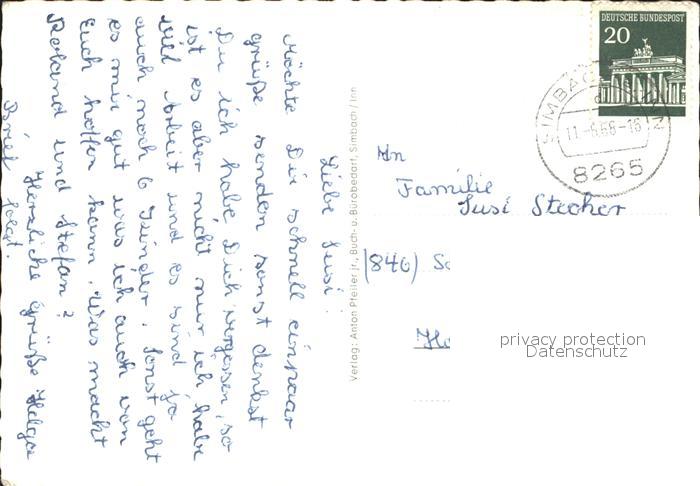 Liebe Susi!
Möchte Dir schnell ein paar
grüße senden sonst denkst
Du ich habe Dich vergessen, so
ist es aber nicht nur ich habe
viel Arbeit und es sind ja
auch noch 6 Kinder. Sonst geht
es mir gut was ich auch von
Euch hoffen kann. Was macht
Roland und Stefan?
Herzliche grüße Helga
Brief folgt.
Verlag: Anton Pfeiler jr., Buch- u. Bürobedarf, Simbach / Inn
DEUTSCHE BUNDESPOST
20
SIMBACH INN
8265
An
Familie
Susi Stecher
(846) Sc
Ha
privacy protection
Datenschutz